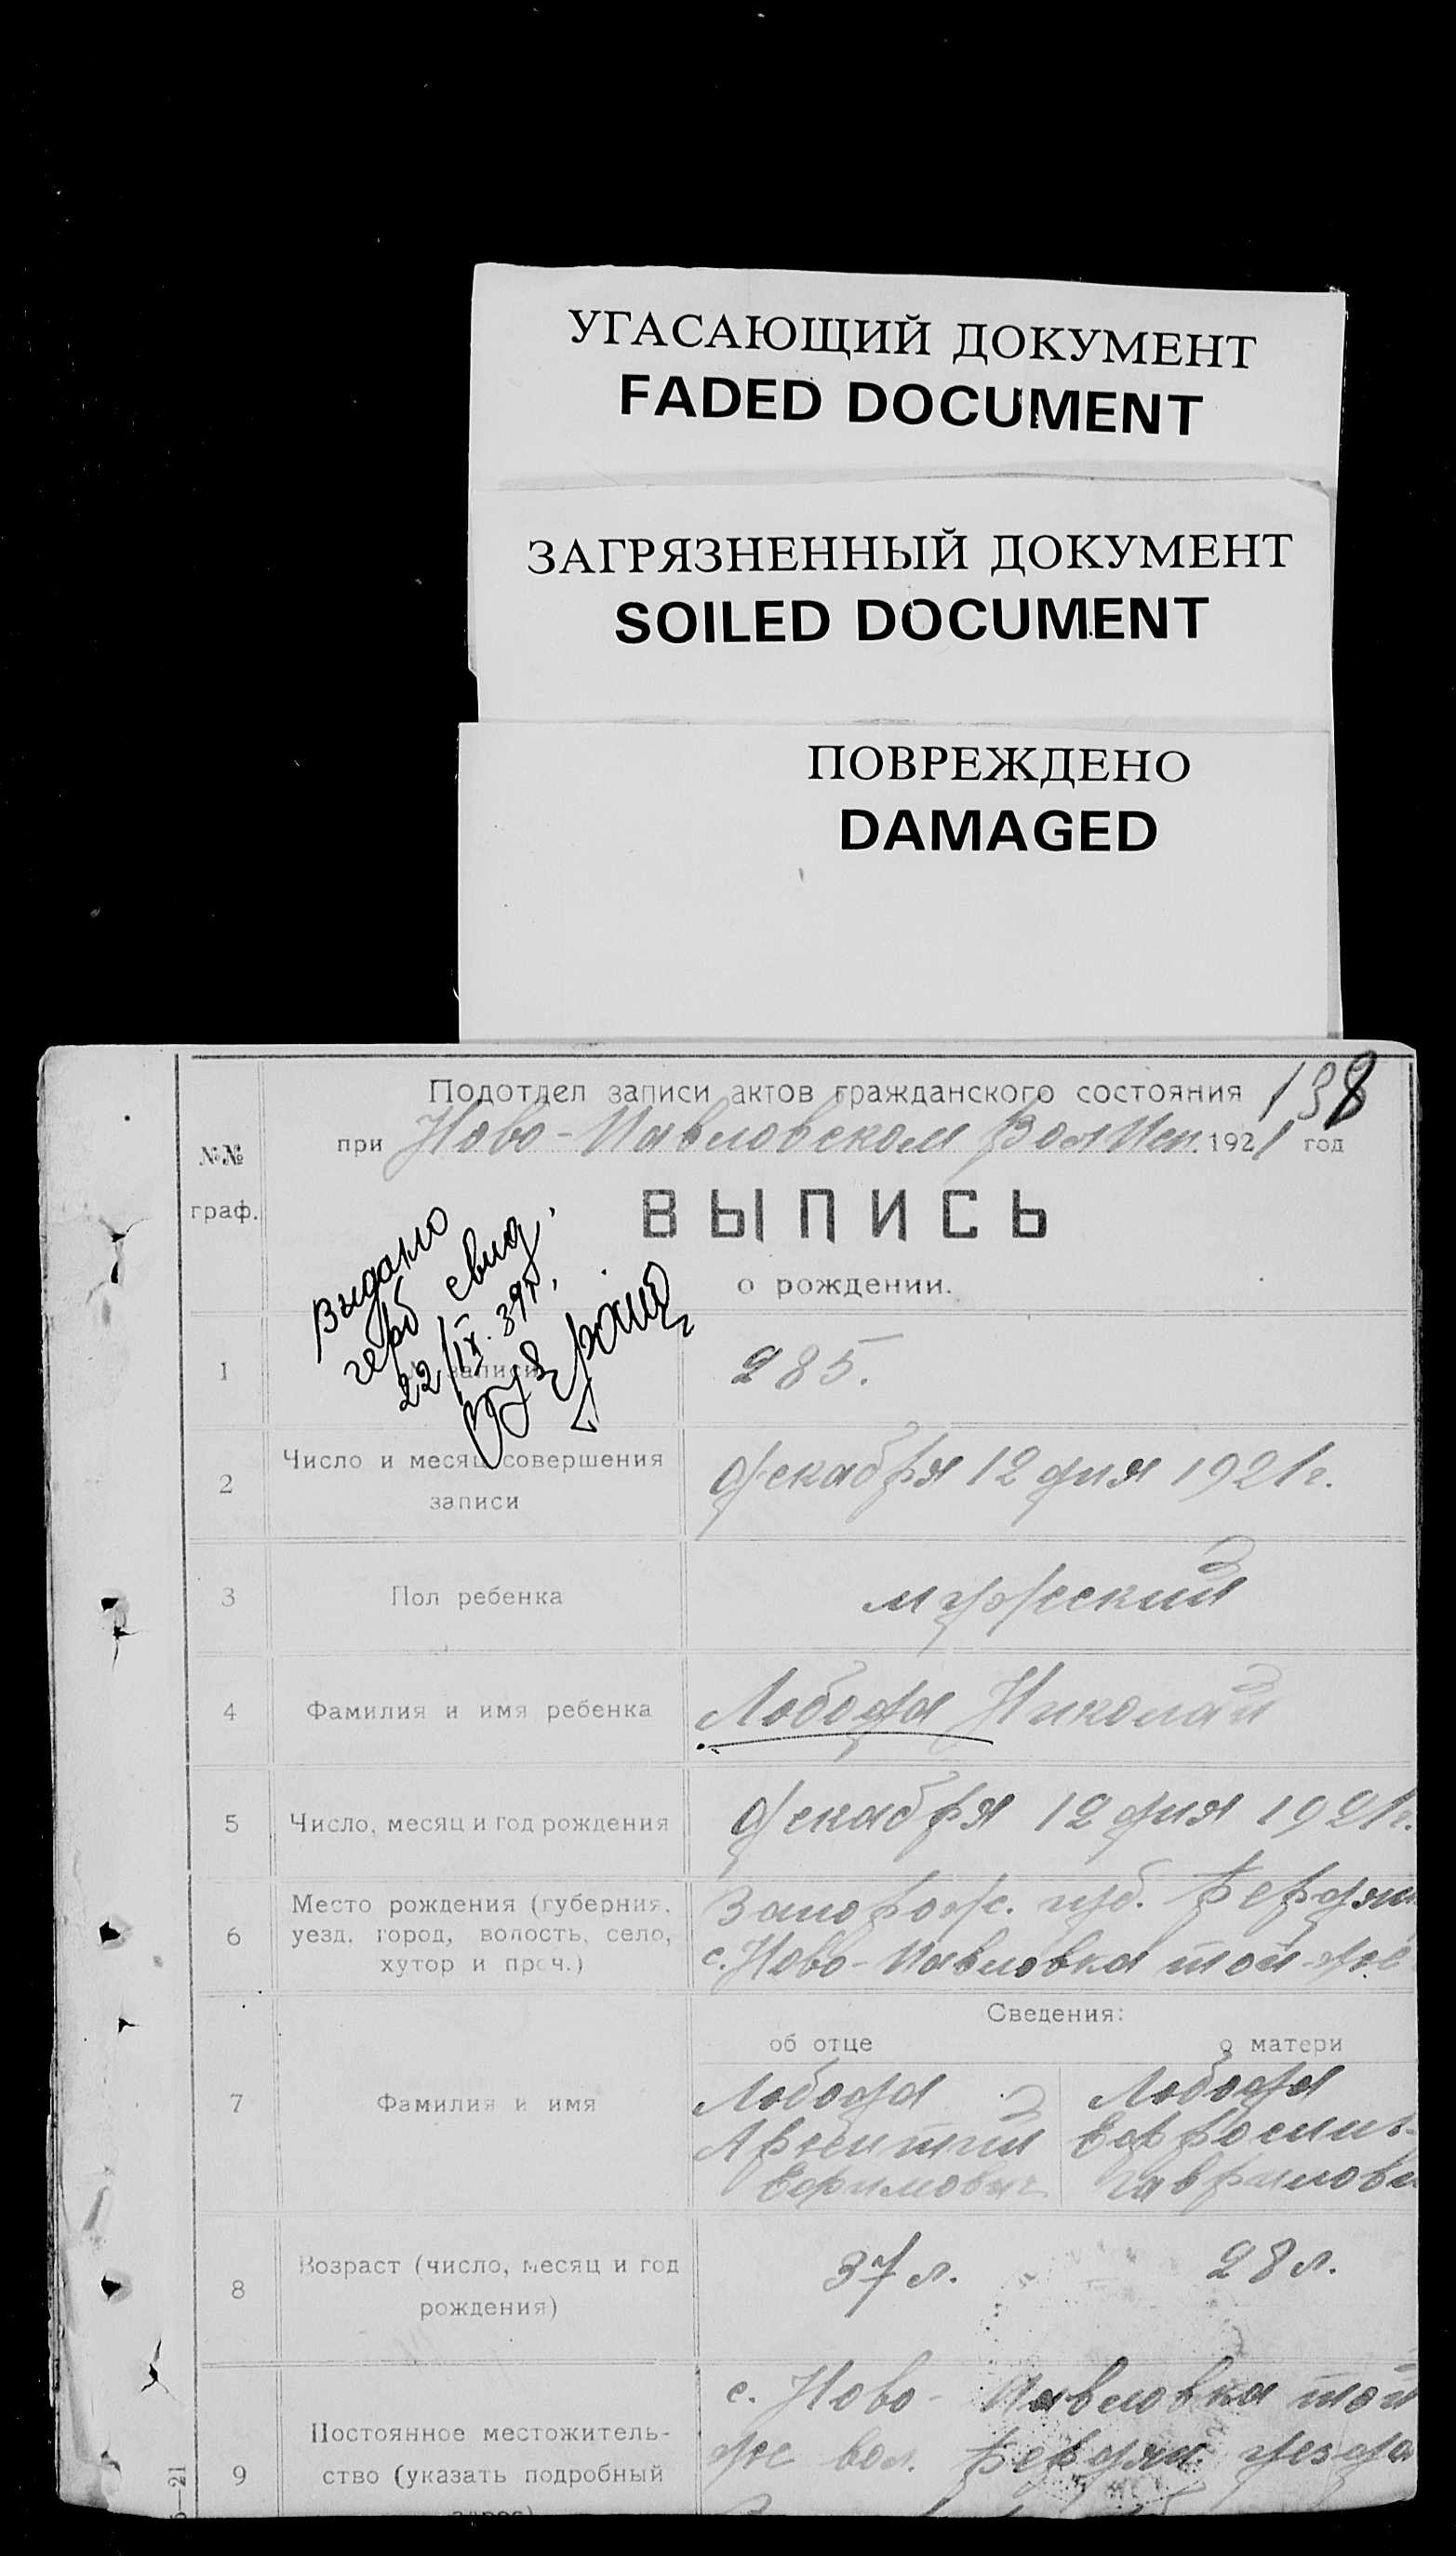 УГАСАЮЩИЙ ДОКУМЕНТ
FADED DOCUMENT
ЗАГРЯЗНЕННЫЙ ДОКУМЕНТ
SOILED DOCUMENT
ПОВРЕЖДЕНО
DAMAGED
138
Подотдел записи актов гражданского состояния
при Ново-Павловском ВолИсп. 1921 год
№№
граф.
ВЫПИСЬ
о рождении.
Выдано
герб свид.
22/IX.39г.
1 записи 285.
2 Число и месяц совершения
записи
Декабря 12 дня 1921г.
3 Пол ребенка мужеский
4 Фамилия и имя ребенка Лобода Николай
5 Число, месяц и год рождения Декабря 12 дня 1921г.
6 Место рождения (губерния,
уезд, город, волость, село,
хутор и проч.)
Запорож. губ. Бердян
с. Ново-Павловка той-же
Сведения:
об отце о матери
7 Фамилия и имя
Лобода Лобода
Ефросинь-
Ефимович Гаврилов
8 Возраст (число, месяц и год
рождения)
37 л. 28 л.
9 Постоянное местожитель-
ство (указать подробный
адрес)
с. Ново-Павловка той
же вол. Бердян. уезда
5—21